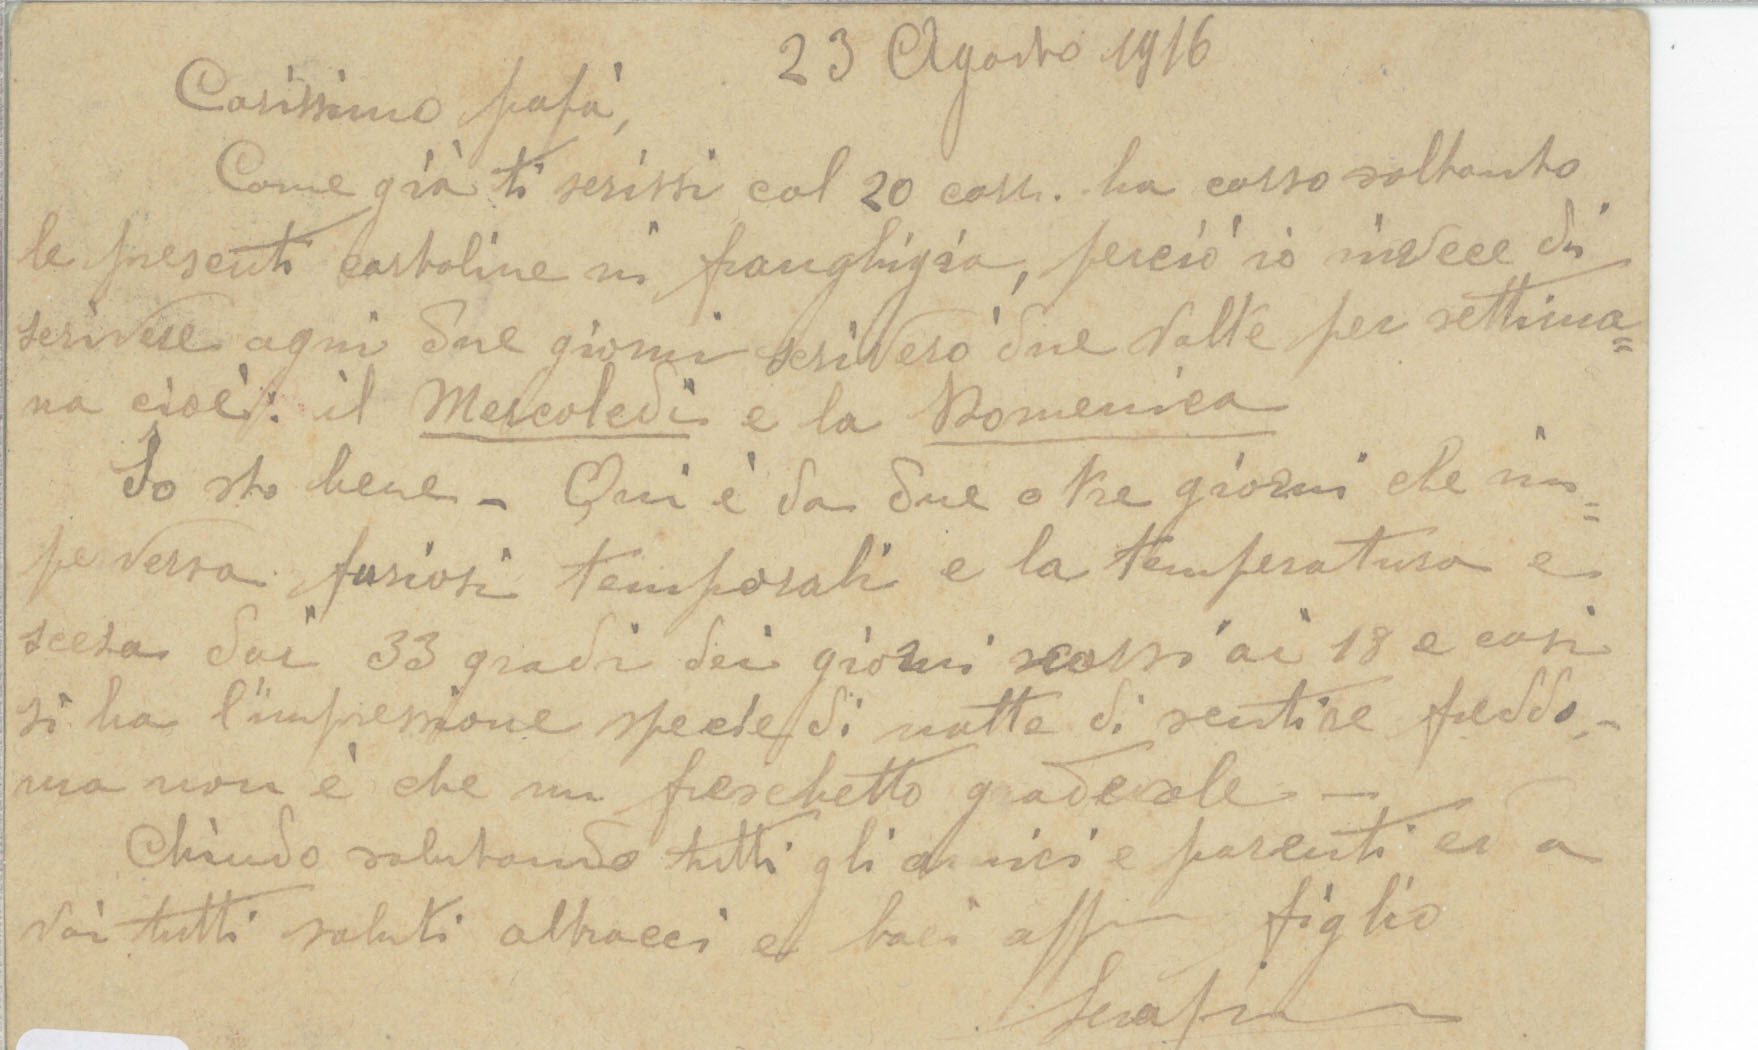 23 Agosto 1916
Carissimo papà,
Come già ti scrissi col 20 corr. ha corso soltanto
le presenti cartoline in franghigia, perciò io invece di
scrivere ogni due giorni scriverò due volte per settima=
na cioè: il Mercoledì e la Domenica
Io sto bene - Qui è da due o tre giorni che im=
perversa furiosi temporali e la temperatura e
scesa dai 33 gradi dei giorni scorsi ai 18 e così
si ha l'impressione specie di notte di sentire freddo, -
ma non è che un freschetto gradevole -
Chiudo salutando tutti gli amici e parenti ed a
voi tutti saluti abbracci e baci aff figlio
Serafin